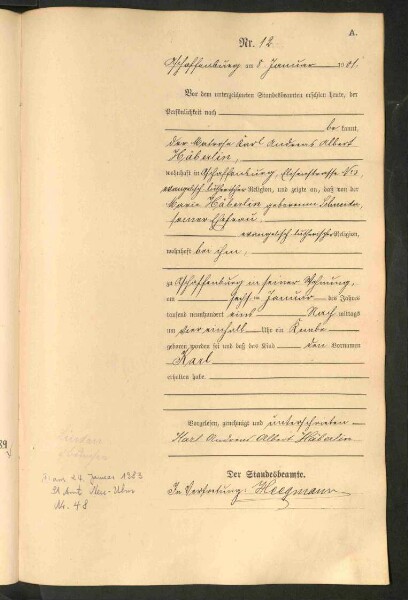 A.
Nr. 12
Aschaffenburg am 8 Januar 1901.
Vor dem unterzeichneten Standesbeamten erschien heute, der
Persönlichkeit nach
be kannt,
der Karl Andreas Albert
Häberlein,
wohnhaft in Aschaffenburg,
evangelisch lutherischer Religion, und zeigte an, daß von der
Marie Häberlein geborenen
seiner Ehefrau
evangelisch lutherischer Religion,
wohnhaft bei ihm,
zu Aschaffenburg in seiner Wohnung,
am sechsten Januar des Jahres
tausend neunhundert eins Nach mittags
um vier einhalb Uhr ein Knabe
geboren worden sei und daß das Kind den Vornamen
Karl
erhalten habe.
Vorgelesen, genehmigt und unterschrieben
Karl Andreas Albert Häberlein
Der Standesbeamte.
In Vertretung: Heegmann
24. Januar 1983
St. Amt Neu-Ulm
Nr. 48